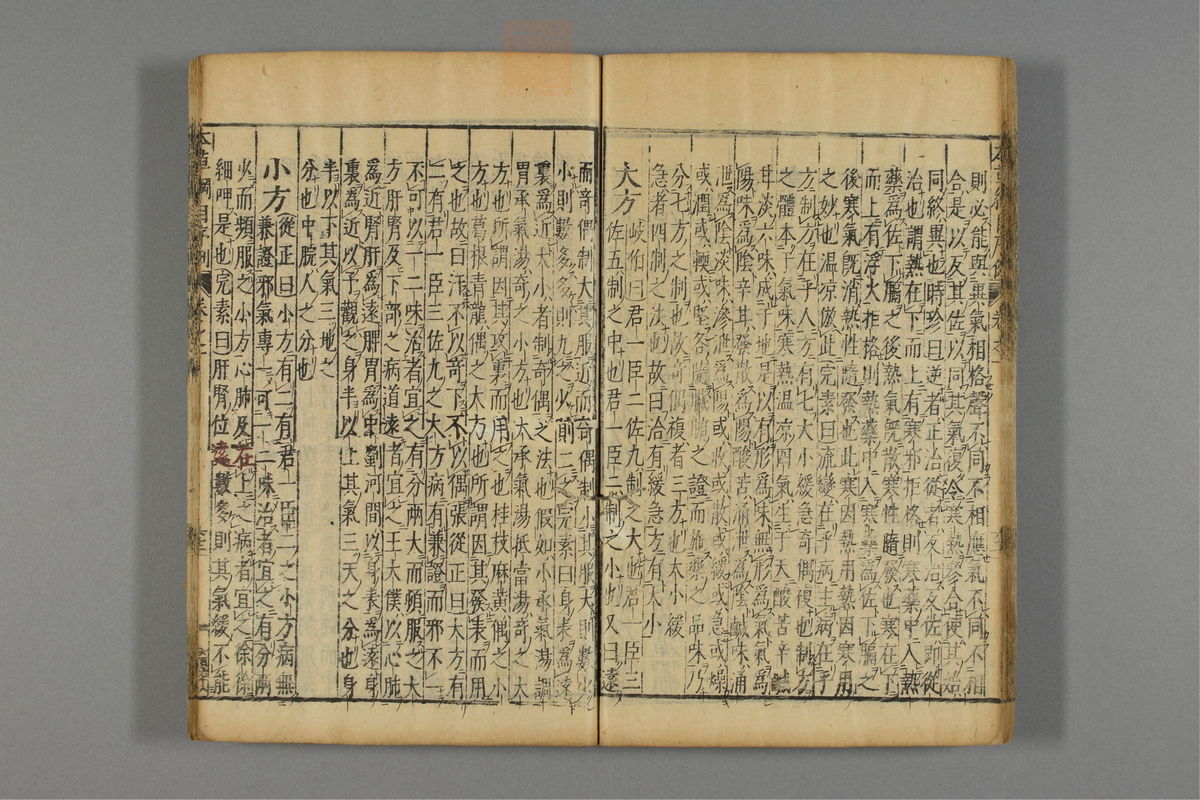 則必能與異氣相格聲不同不相應氣不同不相
合是以反其佐以同其氣復令寒熱參合使其始
同終異也時珍曰逆者正治從者反治反佐即從
治也謂熱在下而上有寒邪拒格則寒藥中入熱
藥為佐下膈之後熱氣既散寒性隨發也寒在下
而上有浮火拒格則熱藥中入寒藥為佐下膈之
後寒氣既消熱性隨發也此寒因熱用熱因寒用
之妙也温凉倣此完素曰流變在乎病主病在乎
方制方在乎人方有七大小緩急奇偶複也制方
之體本于氣味寒熱温凉四氣生于天酸苦辛鹹
甘淡六味成于地是以有形為味無形為氣氣為
陽味為陰辛甘發散為陽酸苦涌泄為陰鹹味涌
泄為陰淡味滲泄為陽或收或散或緩或急或燥
或潤或軟或堅各隨臟腑之證而施藥之品味乃
分七方之制也故奇偶複者三方也大小緩
急者四制之法也故曰治有緩急方有大小
大方岐伯曰君一臣二佐九制之大也君一臣三
佐五制之中也君一臣二制之小也又曰遠
而奇偶制大其服近而奇偶制小其服大則數少
小則數多多則九少則二完素曰身表為遠
裏為近大小者制奇偶之法也假如小承氣湯調
胃承氣湯奇之小方也大承氣湯抵當湯奇之大
方也所謂因其攻裏而用之也桂枝麻黃偶之小
方也葛根青龍偶之大方也所謂因其發表而用
之也故曰汗不以奇下不以偶張從正曰大方有
二有君一臣三佐九之大方病有兼證而邪不一
不可以一二味治者宜之有分兩大而頓服之大
方肝腎及下部之病道遠者宜之王太僕以心肺
為近腎肝為遠脾胃為中劉河間以身表為遠身
裏為近以予觀之身半以上其氣三天之分也身
半以下其氣三地之
分也中脘人之分也
小方從正曰小方有二有君一臣二之小方病無
兼證邪氣專一可一二味治者宜之有分兩
少而頻服之小方心肺及在上之病者宜之徐徐
細呷是也完素曰肝腎位遠數多則其氣緩不能
本草綱目序例 卷之一